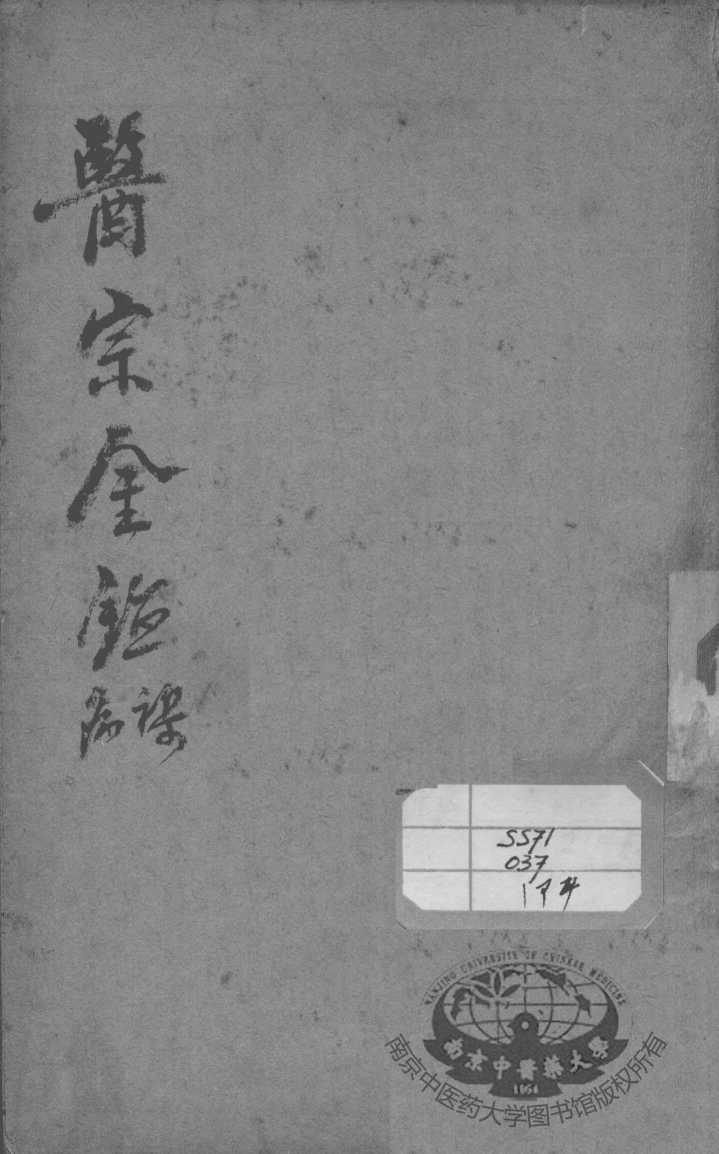 醫宗金鑑
SS71
037
NANJING UNIVERSITY OF CHINESE MEDICINE
南京中醫藥大學
1954
南京中医药大学图书馆版权所有